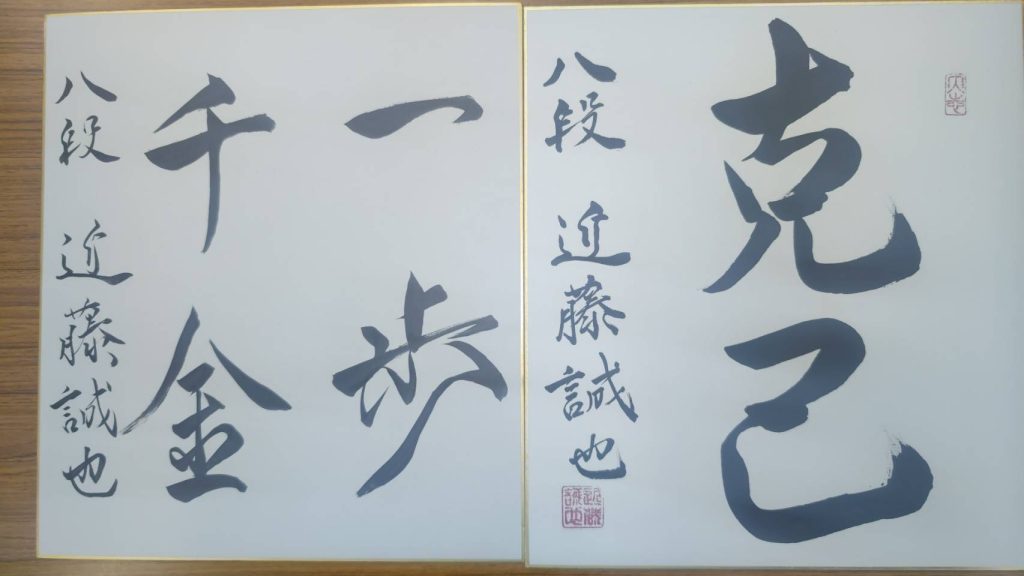 克己
八段 近藤誠也
近藤誠也
一歩
千金
八段 近藤誠也